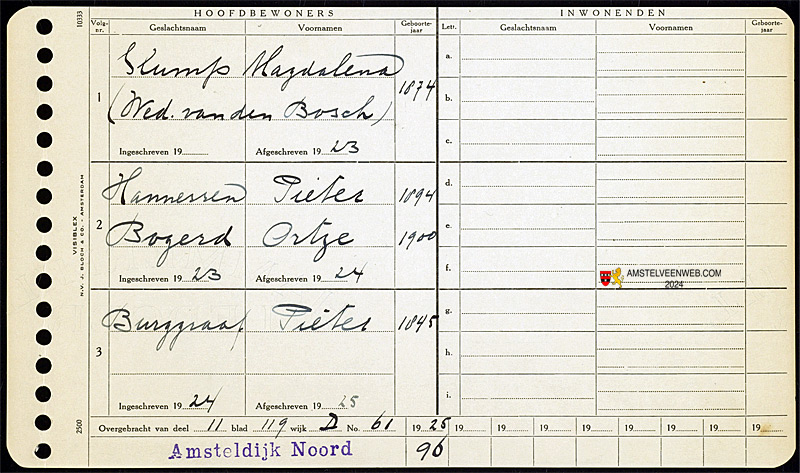 HOOFDBEWONERS
INWONENDEN
Volg-nr. Geslachtsnaam Voornamen Geboorte-jaar
Lett. Geslachtsnaam Voornamen Geboorte-jaar
1 Stump Magdalena 1874
(Wed. van den Bosch)
Ingeschreven 19 Afgeschreven 19 23
2 Hannessen Pieter 1894
Bogerd Ortje 1900
Ingeschreven 19 23 Afgeschreven 19 24
3 Burggraaf Pieter 1845
Ingeschreven 19 24 Afgeschreven 19 25
a.
b.
c.
d.
e.
f.
g.
h.
i.
AMSTELVEENWEB.COM
2024
Overgebracht van deel 11 blad 119 wijk D No. 61 19 25 19 19 19 19 19 19 19 19
Amsteldijk Noord 96
10333
VISIBLEX
N.V. J. BLOCH & CO. - AMSTERDAM
2500